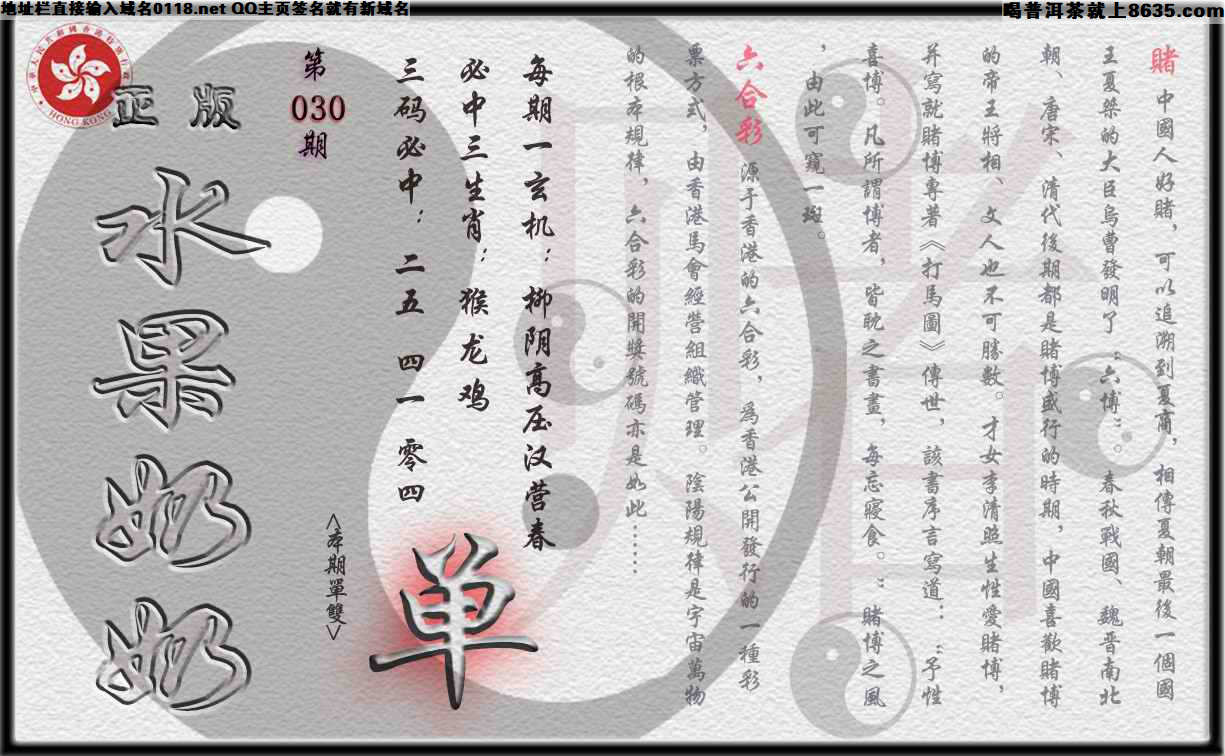 地址栏直接输入域名0118.net QQ主页签名就有新域名
喝普洱茶就上8635.com
賭 中國人好賭，可以追溯到夏商，相傳夏朝最後一個國
王夏桀的大臣烏曹發明了“六博”。春秋戰國、魏晋南北
朝、唐宋、清代後期都是賭博盛行的時期，中國喜歡賭博
的帝王將相、文人也不可勝數。才女李清照生性愛賭博，
并寫就賭博專著《打馬圖》傳世，該書序言寫道：：“予性
喜博。凡所謂博者，皆耽之書畫，每忘寢食。”賭博之風
，由此可窺一斑。
六合彩 源于香港的六合彩，爲香港公開發行的一種彩
票方式，由香港馬會經營組織管理。陰陽規律是宇宙萬物
的根本規律，六合彩的開獎號碼亦是如此……
每期一玄机：柳阴高压汉营春
必中三生肖：猴龙鸡
三码必中：二五 四一 零四
第
030
期
<本期單雙>
单
正版
水果奶奶
HONG KONG